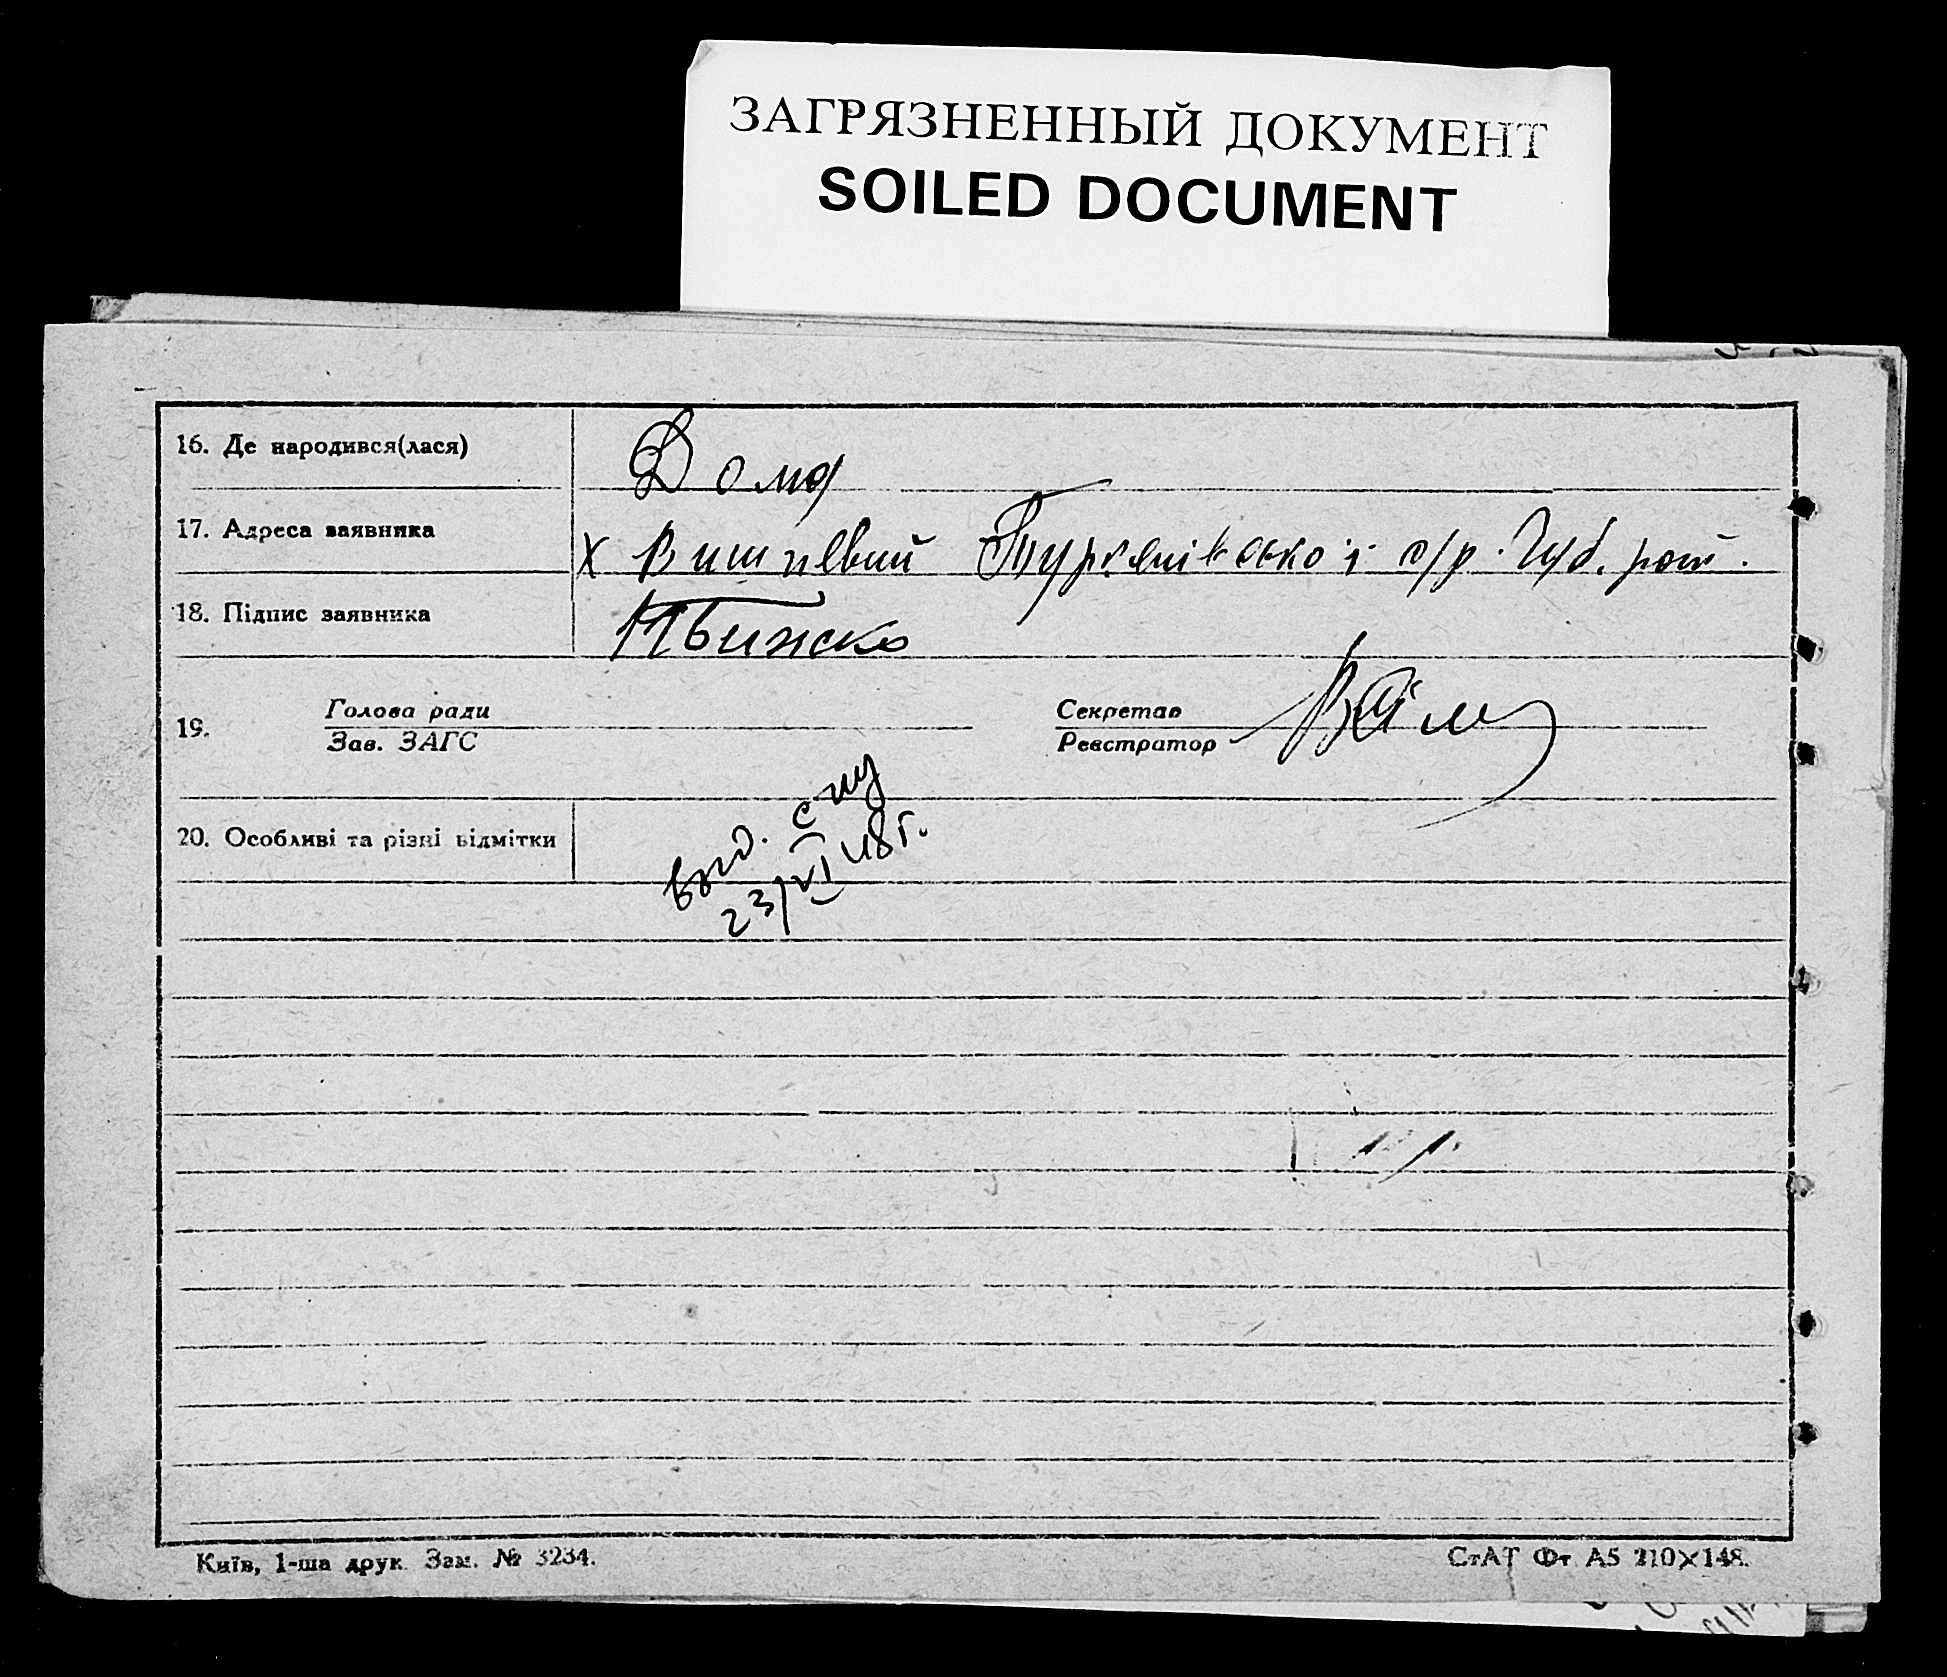 ЗАГРЯЗНЕННЫЙ ДОКУМЕНТ
SOILED DOCUMENT
16. Де народився(лася) Дома
17. Адреса заявника х Вишневий с/р. Чуб. рай.
18. Підпис заявника
19. Голова ради
Зав. ЗАГС
Секретар
Реєстратор
20. Особливі та різні відмітки
23/VI 48 г.
Київ, 1-ша друк. Зам. № 3234.
СтАТ Фт А5 210×148.